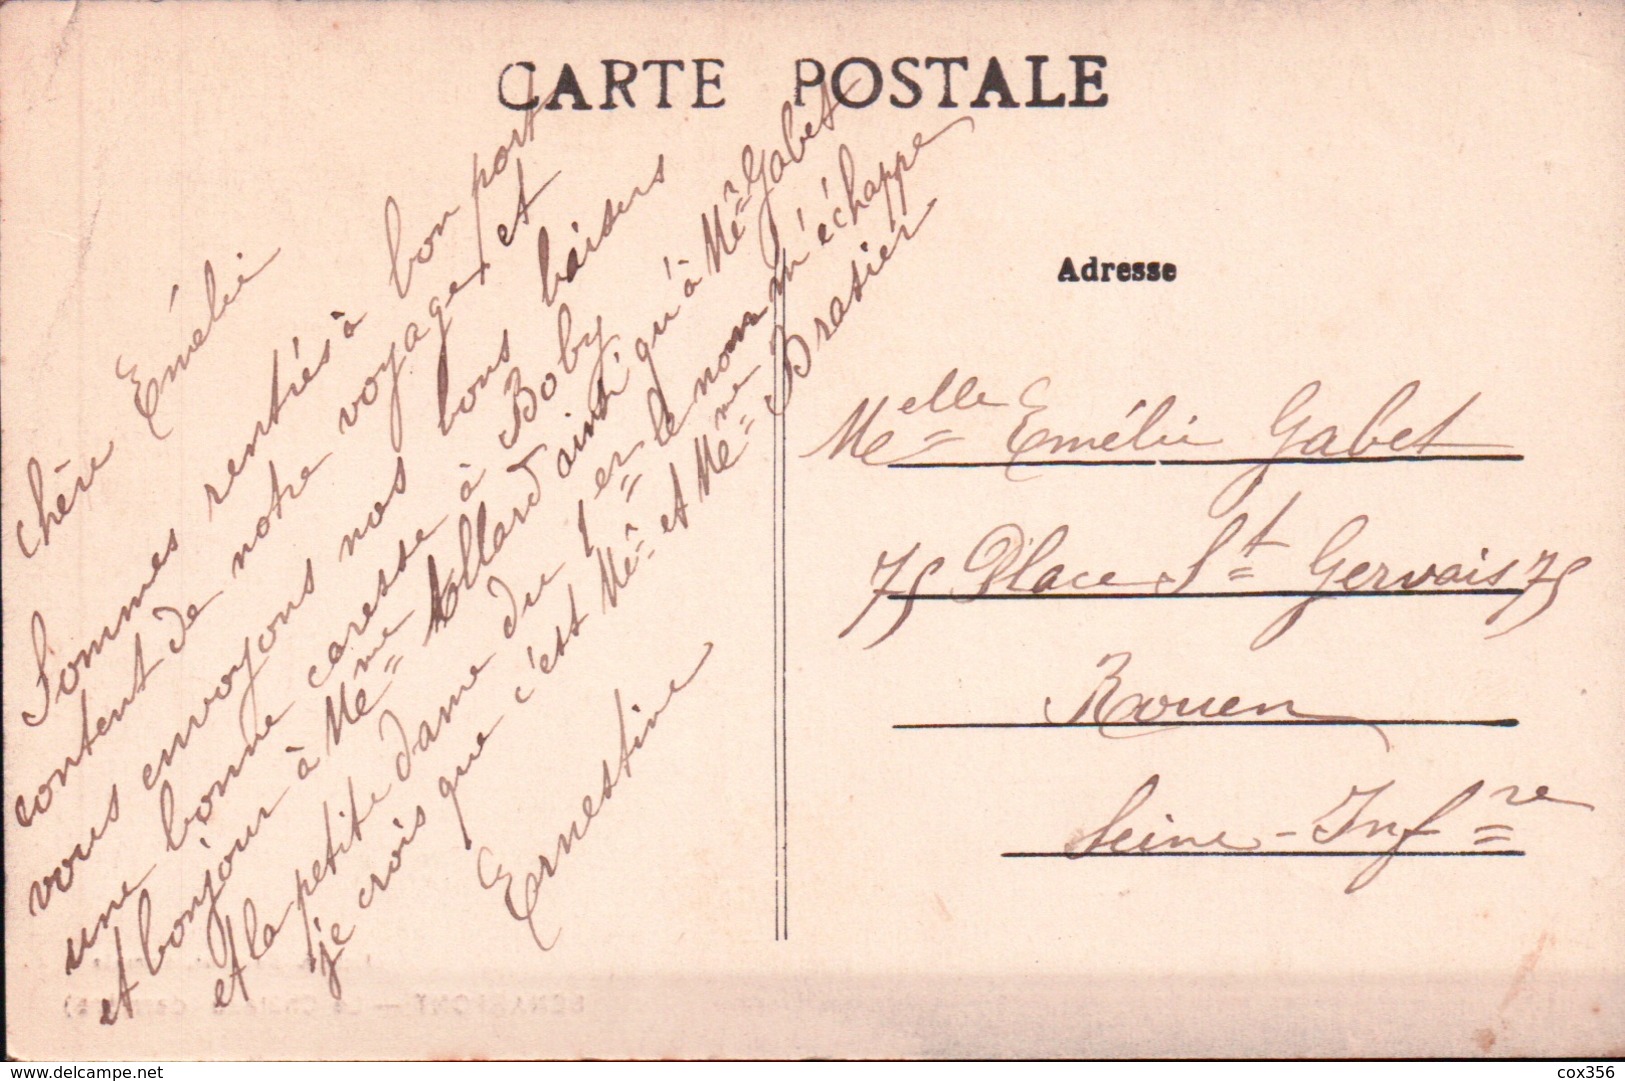 CARTE POSTALE
Chère Emélie
Sommes rentrés à bon port
content de notre voyage, et
vous envoyons nos bons baisers
une bonne caresse à Boby
et bonjour à Me^me Collard ainsi qu'à Me^ Gabet
et la petite dame du 1^er le nom m'échappe
je crois que c'est Me^ et Me^me Brasier
Ernestine
Adresse
Me^elle Emélie Gabet
75 Place S^t Gervais 75
Rouen
Seine-Inf^re
www.delcampe.net
cox356